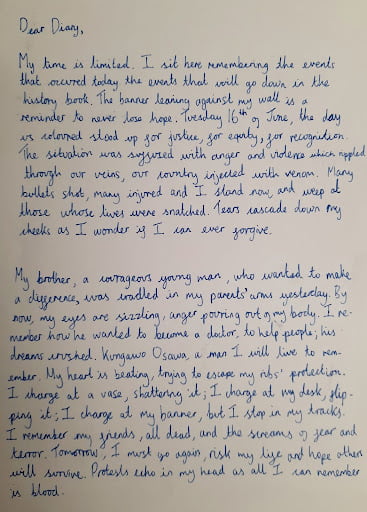 Dear Diary,
My time is limited. I sit here remembering the events
that occured today the events that will go down in the
history book. The banner leaning against my wall is a
reminder to never lose hope. Tuesday 16th of June, the day
us coloured stood up for justice, for equity, for recognition.
The situation was suffused with anger and violence which rippled
through our veins, our country injected with venom. Many
bullets shot, many injured and I stand now, and weep at
those whose lives were snatched. Tears cascade down my
cheeks as I wonder if I can ever forgive.
My brother, a courageous young man, who wanted to make
a difference, was cradled in my parents' arms yesterday. By
now, my eyes are sizzling, anger pouring out of my body. I re-
member how he wanted to become a doctor, to help people; his
dreams crushed. Kungawo Osawa, a man I will live to rem-
ember. My heart is beating, trying to escape my ribs' protection.
I charge at a vase, shattering it; I charge at my desk, flip-
ping it; I charge at my banner, but I stop in my tracks.
I remember my friends, all dead, and the screams of fear and
terror. Tomorrow, I must go again, risk my life and hope others
will survive. Protests echo in my head as all I can remember
is blood.